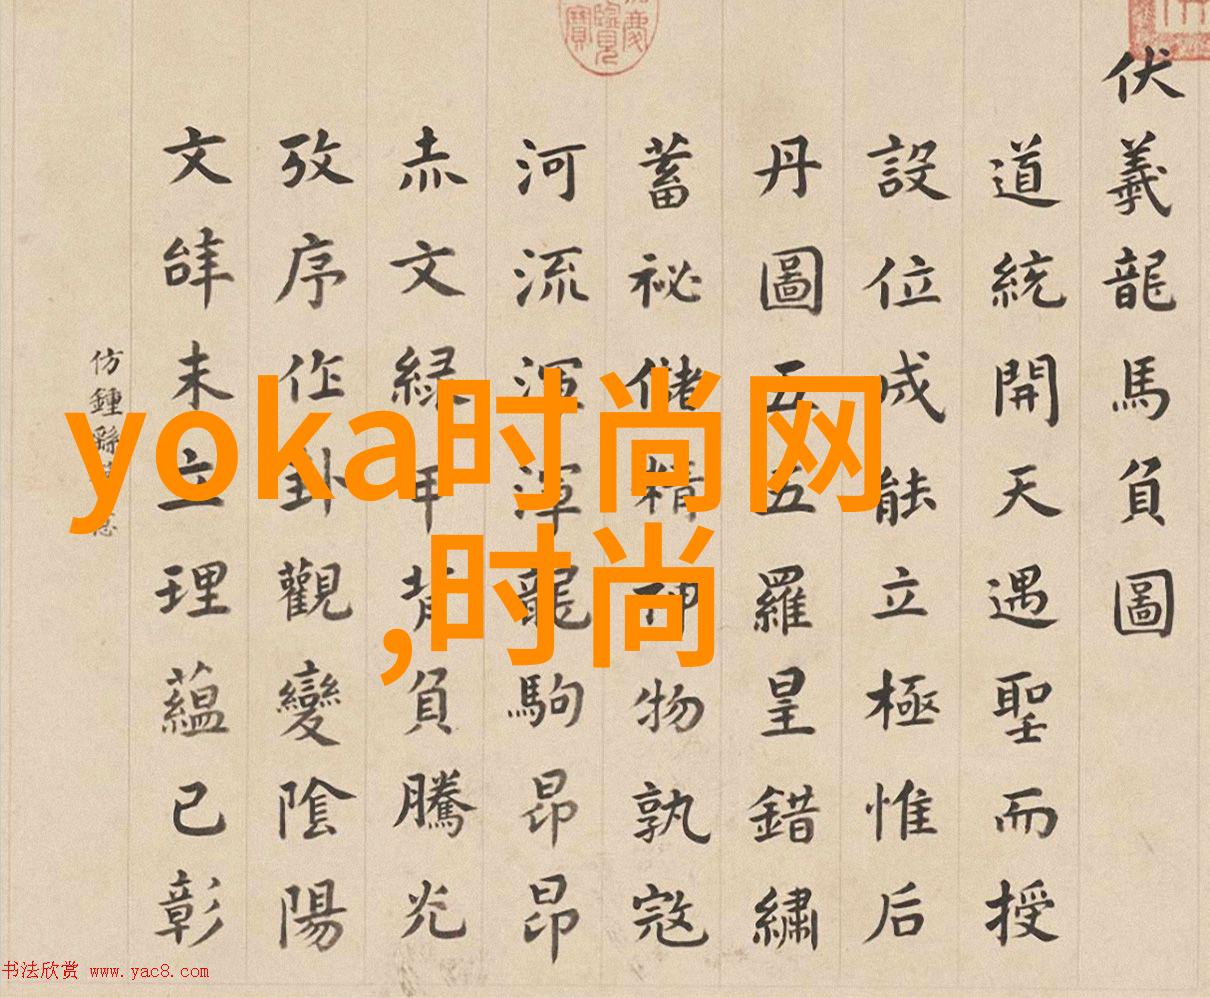 伏羲龍馬負圖
道統開天遇聖而授
設位成能立極惟后
丹圖五五羅皇錯繡
蓄祕儲精神物孰寇
河流渾渾龍駒昂昂
赤文綠甲背負騰光
攷序作卦觀變陰陽
文辞未立理蘊已彰
仿鍾繇
yoka时尚网
,时尚
书法欣赏 www.yac8.com